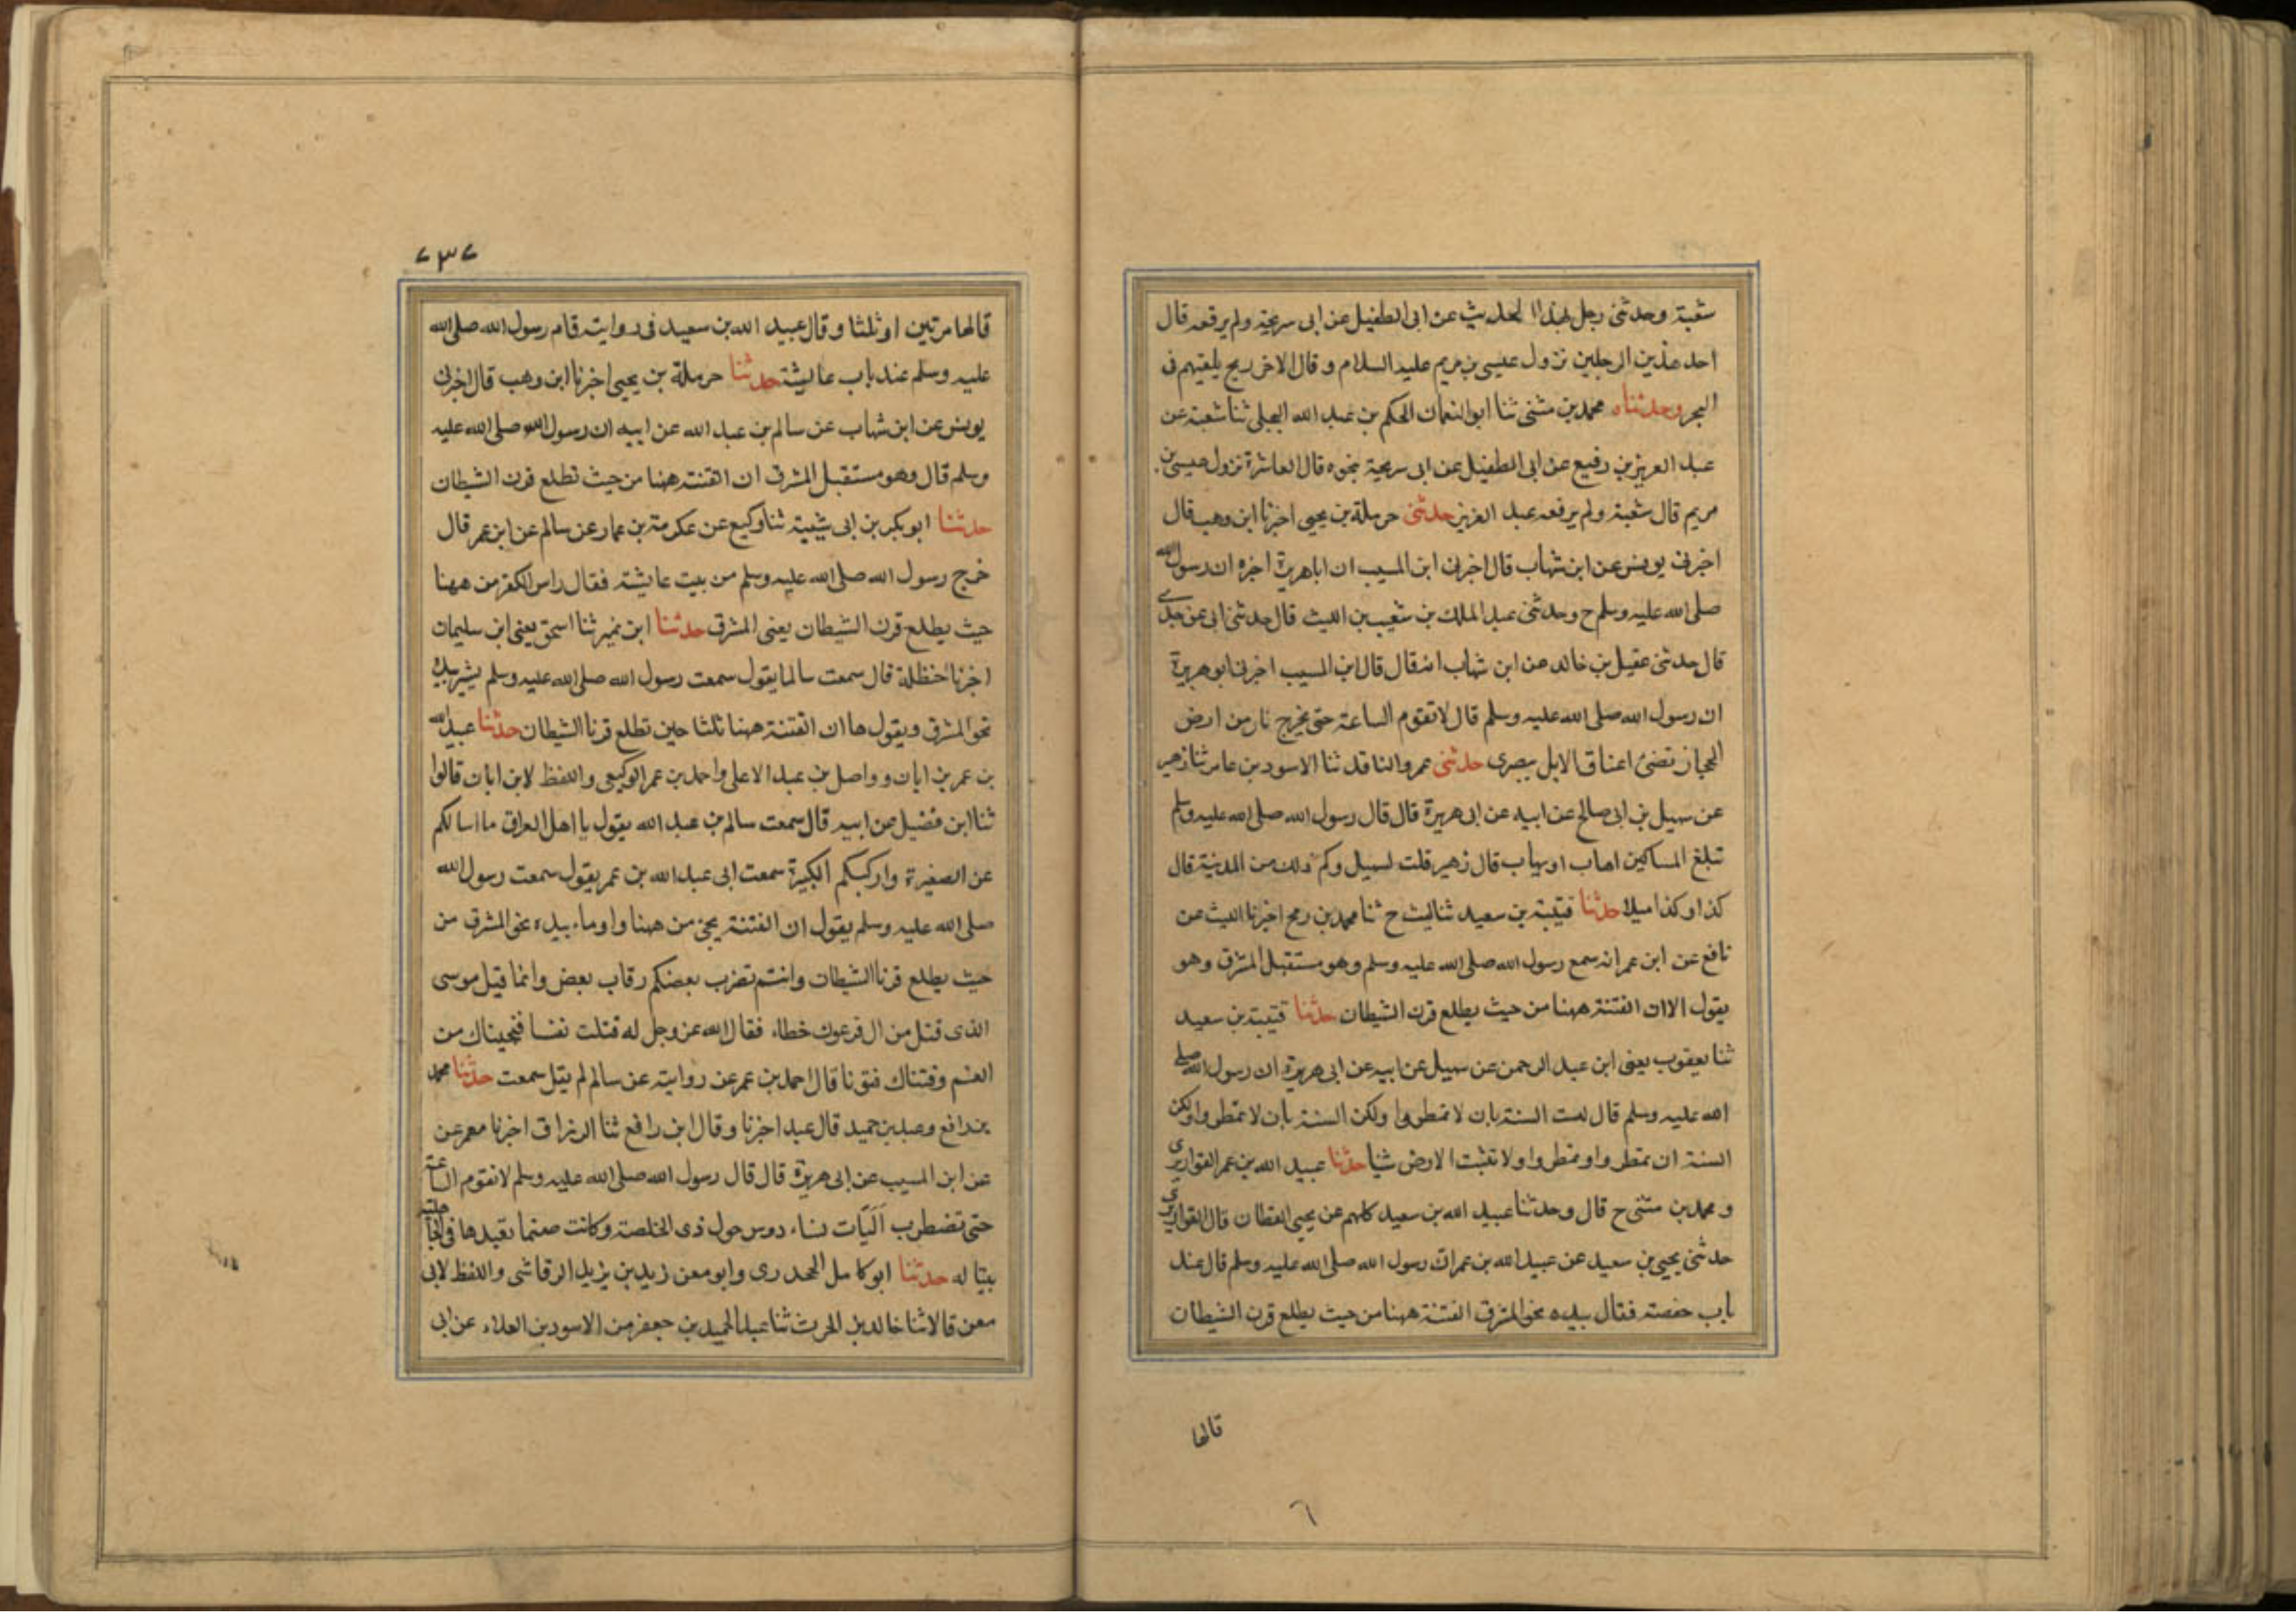 شعبة وحدثنى رجل بهذا الحديث عن ابى الطفيل عن ابى سريحة ولم يرفعه قال
احد هذين الرجلين نزول عيسى بن مريم عليه السلام وقال الاخر ريح يلقيهم فى
البحر وحدثناه محمد بن مثنى ثنا ابو النعمان الحكم بن عبد الله العجلى ثنا شعبة عن
عبد العزيز بن رفيع عن ابى الطفيل عن ابى سريحة بنحوه قال العاشرة نزول عيسى بن
مريم قال شعبة ولم يرفعه عبد العزيز حدثنى حرملة بن يحيى اخبرنا ابن وهب قال
اخبرنى يونس عن ابن شهاب قال اخبرنى ابن المسيب ان اباهريرة اخبره ان رسول الله
صلى الله عليه وسلم ح وحدثنى عبد الملك بن شعيب بن الليث قال حدثنى ابى عن جدى
قال حدثنى عقيل بن خالد عن ابن شهاب انه قال قال ابن المسيب اخبرنى ابو هريرة
ان رسول الله صلى الله عليه وسلم قال لا تقوم الساعة حتى يخرج نار من ارض
الحجاز تضئ اعناق الابل ببصرى حدثنى عمرو الناقد ثنا الاسود بن عامر ثنا زهير
عن سهيل بن ابى صالح عن ابيه عن ابى هريرة قال قال رسول الله صلى الله عليه وسلم
تبلغ المساكين اهاب او يهاب قال زهير قلت لسهيل وكم ذلك من المدينة قال
كذا وكذا ميلا حدثنا قتيبة بن سعيد ثنا ليث ح ثنا محمد بن رمح اخبرنا الليث عن
نافع عن ابن عمر انه سمع رسول الله صلى الله عليه وسلم وهو مستقبل المشرق وهو
يقول الا ان الفتنة ههنا من حيث يطلع قرن الشيطان حدثنا قتيبة بن سعيد
ثنا يعقوب يعنى ابن عبد الرحمن عن سهيل عن ابيه عن ابى هريرة ان رسول الله صلى
الله عليه وسلم قال ليست السنة بان لا تمطروا ولكن السنة بان لا تمطروا ولكن
السنة ان تمطروا وتمطروا ولا تنبت الارض شيأ حدثنا عبيد الله بن عمر القواريرى
و محمد بن مثنى ح قال وحدثنا عبيد الله بن سعيد كلهم عن يحيى القطان قال القواريرى
حدثنى يحيى بن سعيد عن عبيد الله بن عمر ان رسول الله صلى الله عليه وسلم قال عند
باب حفصة فقال بيده نحو المشرق الفتنة ههنا من حيث يطلع قرن الشيطان
قالها
٦
٢٣٢
قالها مرتين او ثلثا وقال عبيد الله بن سعيد فى روايته قام رسول الله صلى الله
عليه وسلم عند باب عايشة حدثنا حرملة بن يحيى اخبرنا ابن وهب قال اخبرنى
يونس عن ابن شهاب عن سالم بن عبد الله عن ابيه ان رسول الله صلى الله عليه
وسلم قال وهو مستقبل المشرق ان الفتنة ههنا من حيث تطلع قرن الشيطان
حدثنا ابو بكر بن ابى شيبة ثنا وكيع عن عكرمة بن عمار عن سالم عن ابن عمر قال
خرج رسول الله صلى الله عليه وسلم من بيت عايشة فقال راس الكفر من ههنا
حيث يطلع قرن الشيطان يعنى المشرق حدثنا ابن نمير ثنا اسحق يعنى ابن سليمان
اخبرنا حنظلة قال سمعت سالما يقول سمعت رسول الله صلى الله عليه وسلم يشير بيده
نحو المشرق ويقول ها ان الفتنة ههنا ثلثا حين تطلع قرنا الشيطان حدثنا عبيد الله
بن عمر بن ابان و واصل بن عبد الاعلى واحمد بن عمر الوكيعى واللفظ لابن ابان قالوا
ثنا ابن فضيل عن ابيه قال سمعت سالم بن عبد الله يقول يا اهل العراق ما اسالكم
عن الصغيرة واركبكم الكبيرة سمعت ابى عبد الله بن عمر يقول سمعت رسول الله
صلى الله عليه وسلم يقول ان الفتنة يجئ من ههنا واوماء بيده نحو المشرق من
حيث يطلع قرنا الشيطان وانتم تضرب بعضكم رقاب بعض وانما قتل موسى
الذى قتل من ال فرعون خطاء فقال الله عز وجل له قتلت نفسا فنجيناك من
الغم وفتناك فتونا قال احمد بن عمر عن روايته عن سالم لم يقل سمعت حدثنا محمد
بن رافع وعبد بن حميد قال عبد اخبرنا وقال ابن رافع ثنا الرزاق اخبرنا معمر عن
عن ابن المسيب عن ابى هريرة قال قال رسول الله صلى الله عليه وسلم لا تقوم الساعة
حتى تضطرب اَلَيَات نساء دوس حول ذى الخلصة وكانت صنما تعبدها فى الجاهلية
بيتا له حدثنا ابو كامل الجحدرى وابو معن زيد بن يزيد الرقاشى واللفظ لابى
معن قالا ثنا خالد بن الحرث ثنا عبد الحميد بن جعفر عن الاسود بن العلاء عن ابى